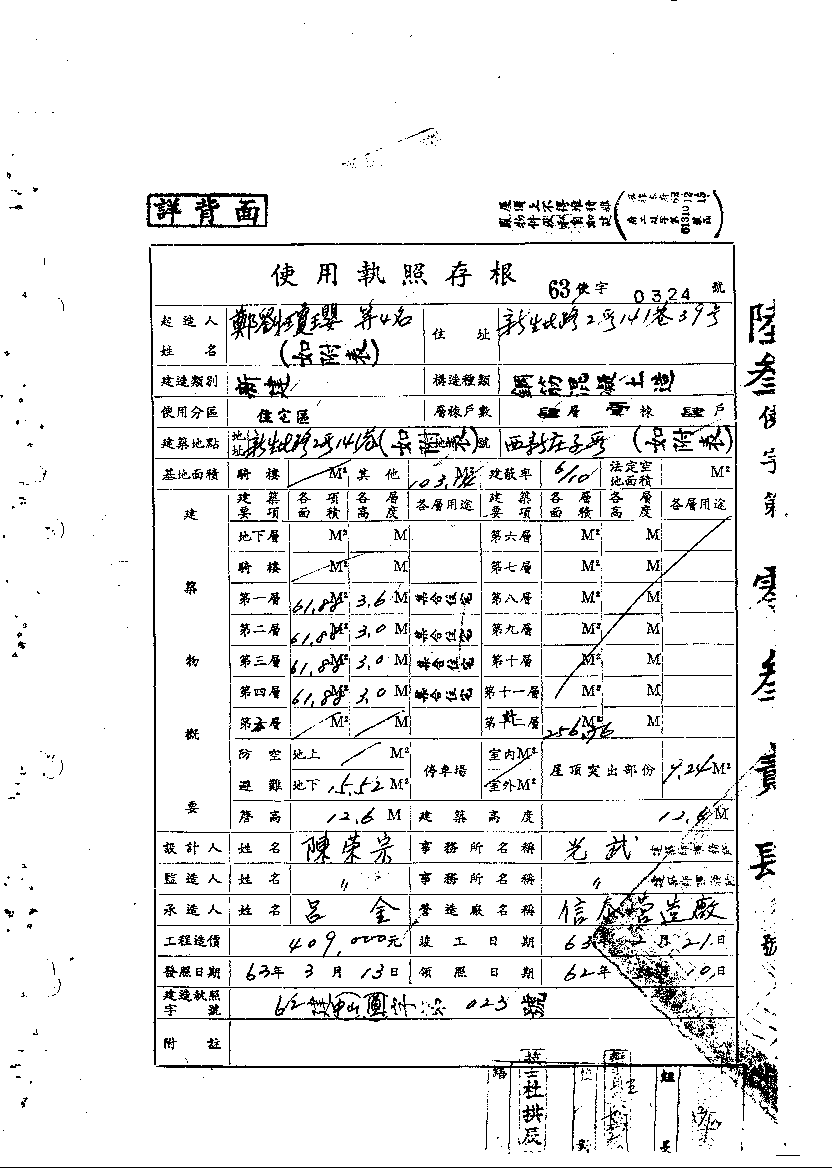 詳背面
使用執照存根 63使字 0324 號
起造人姓名 鄭劉瓊瓔 等4名 (如附表) 住址 新生北路2段141巷39号
建造類別 新建 構造種類 鋼筋混凝土造
使用分區 住宅區 層棟戶數 層 棟 戶
建築地點 地址 新生北路2段141巷(如附表)號 西新庄子段 (如附表)
基地面積 騎樓 M² 其他 M² 建蔽率 6/10 法定空地面積 M²
建築物概要
建築要項 各項面積 各層高度 各層用途 建築要項 各層面積 各層高度 各層用途
地下層 M² M 第六層 M² M
騎樓 M² M 第七層 M² M
第一層 61.88 M² 3.6 M 集合住宅 第八層 M² M
第二層 61.88 M² 3.0 M 集合住宅 第九層 M² M
第三層 61.88 M² 3.0 M 集合住宅 第十層 M² M
第四層 61.88 M² 3.0 M 集合住宅 第十一層 M² M
第五層 M² M 第 層 M² M
防空避難 地上 M² 停車場 室內M² 屋頂突出部份 9.24 M²
地下 15.52 M² 室外M²
簷高 12.6 M 建築高度 12.6 M
設計人 姓名 陳榮宗 事務所名稱 光武
監造人 姓名 〃 事務所名稱 〃
承造人 姓名 呂金 營造廠名稱 信泰營造廠
工程造價 409,000元 竣工日期 63年2月21日
發照日期 63年3月13日 領照日期 62年 10日
建造執照字號 023 號
附註
陸叁使字第零叁貳 號